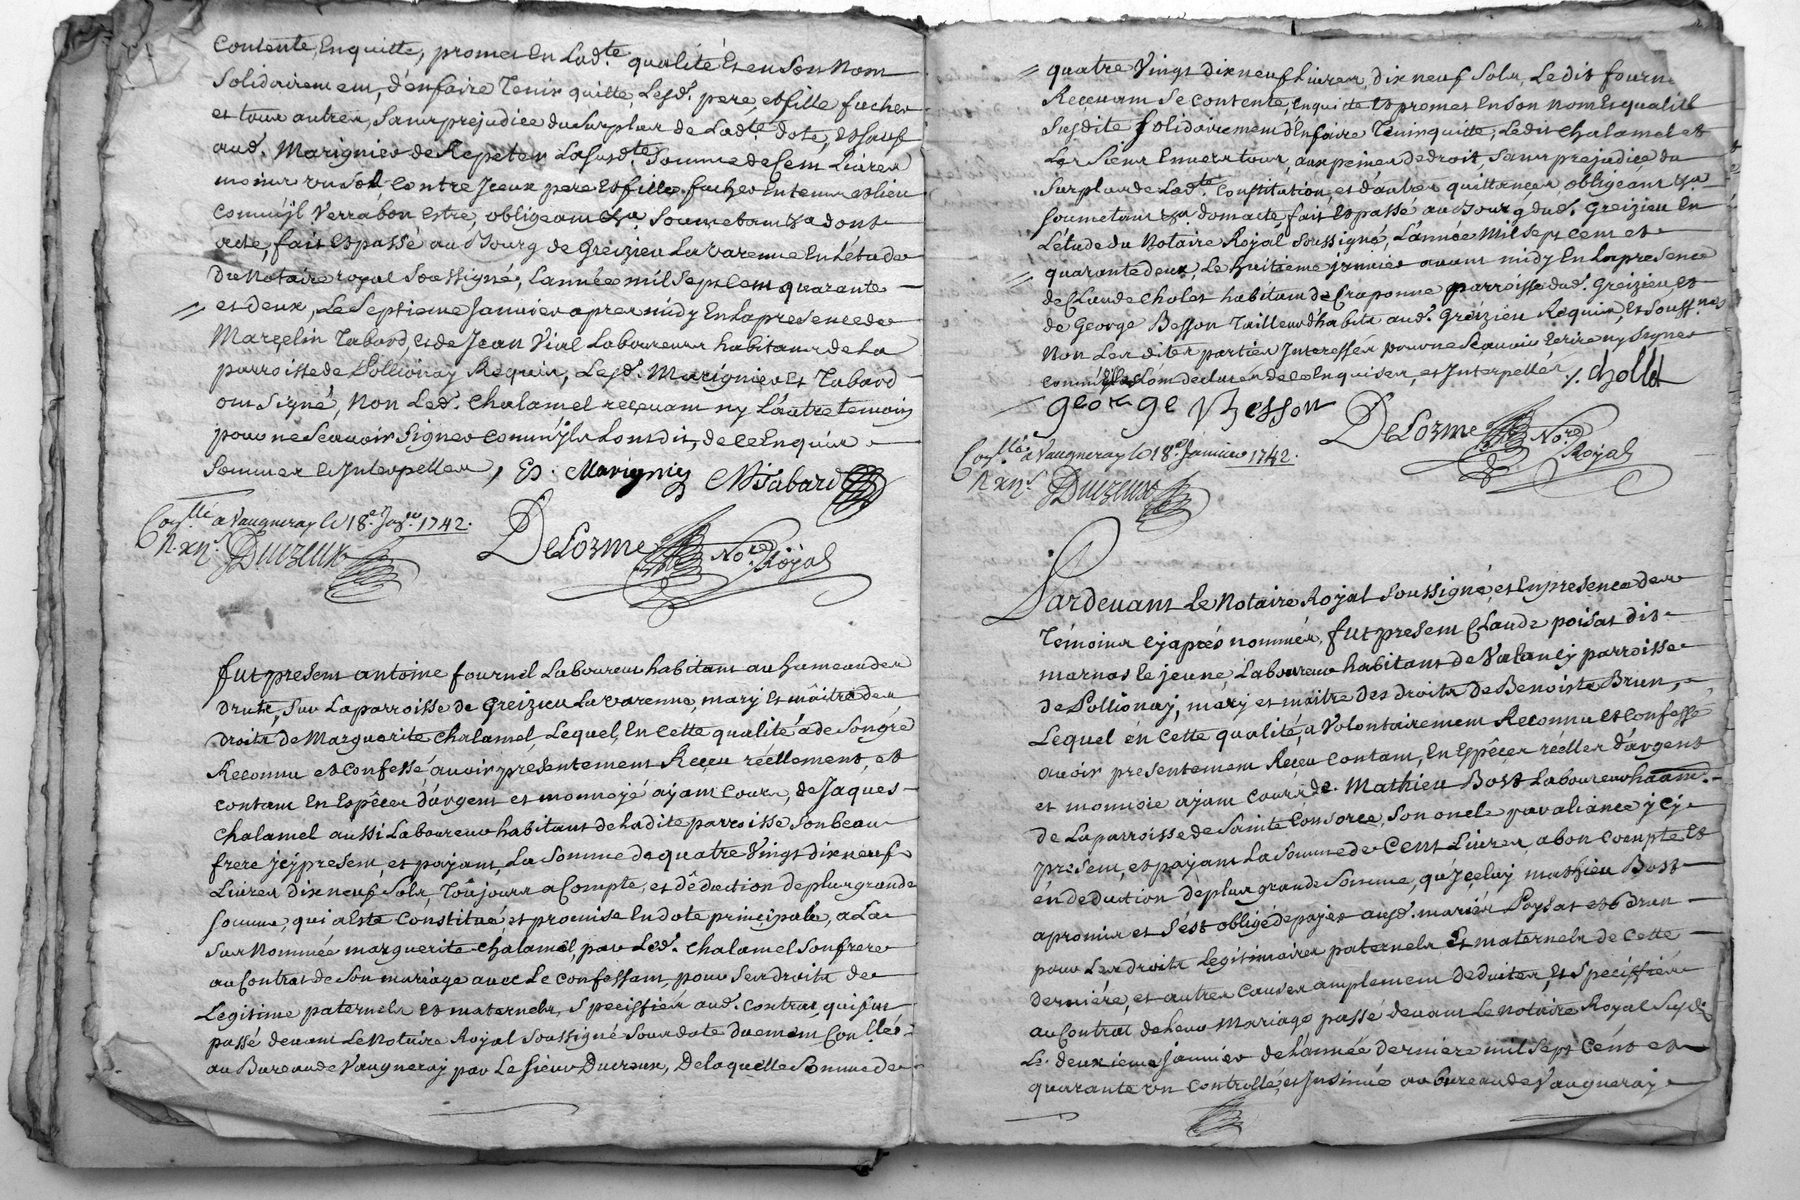 contente, en quitte, promet en lad.te qualité et en son nom
solidairement, d'en faire tenir quitte, lesd. pere, et fille fucher
et tous autres, sans prejudice du surplus de lad.te dote, et sauf
aud. Marignier de Repeter lasusd.te somme de Cent Livres
moins un sol, contre jceux pere et fille fucher en tems et lieu
comm'jl verra bon estre, obligeant &a soumettant &a dont
acte, fait et passé au Bourg de Greizieu Lavarenne en l'étude
du Notaire royal soussigné, l'année mil sept Cent quarante
et deux, Le septieme janvier apres midy en la presence de
Marçelin Tabard, et de Jean Vial Laboureurs habitans de la
parroisse de Pollionay Requis, Lesd. Marignier et Tabard
ont signé, Non Led. Chalamel reçevant ny l'autre temoin
pour ne sçavoir signer comm'jls l'ont dit, de ce Enquis
sommer et jnterpeller, Es. Marigniy M Tabard
Con.llé a Vaugneray le 18.e Jan.er 1742.
R. xij s. Ducreux
DeLorme No.re Royal
fut present antoine fournel Laboureur habitant au hameau des
Drute, sur La parroisse de Greizieu Lavarenne, mary et maître des
droits de Marguerite Chalamel, Lequel, En cette qualité a de son gré
Reconnu et confessé, avoir presentement Reçeu réellement, et
contant En Espêces d'argent et monnoyé ayant cours, de Jaques
Chalamel aussi Laboureur habitant de Ladite parroisse son beau
frere jcy present, et payant, La somme de quatre Vings dix neuf
Livres dix neuf sols, Toûjours a Compte, et dêduction de plus grande
somme, qui a Esté Constituée, et promise En dote principale, a La
sus Nommée marguerite Chalamel, par Led. Chalamel son frere
au Contrat de son mariage avec Le confessant, pour ses droits de
Légitime paternels et maternels, speciffiez aud. contrat, qui fut
passé devant Le Notaire Royal soussigné sous date duement Con.llés
au Bureau de Vaugneray par Le sieur Ducreux, De laquelle somme de
quatre Vings dix neuf Livres, dix neuf sols, Ledit fournel
Reçevant se contente, en quitte et promet En son nom Et qualité
susdite solidairement d'En faire Tenir quitte, Ledit Chalamel et
Les siens Envers tous, aux peines de droit, sans prejudice du
surplus de Lad.te Constitution, et d'autres quittances obligeant &a
soumetant &a dont acté, fait et passé au Bourg dud. Greizieu En
L'étude du Notaire Royal soussigné, L'année Mil sept Cent et
quarante deux, Le huitieme janvier avant midy En La presence
de Claude Cholet habitant de Craponne parroisse dud. Greizieu et
de George Besson Tailleur d'habits aud. Greizieu Requis, et souss.nes
Non Les dites parties Interessées pour ne sçavoir Ecrire ny signer
comm'jls l'ont declarer de ce Enquises, et jnterpellés
Chollet
george Besson
DeLorme No.re Royal
Con.llé a Vaugneray le 18.e Janvier 1742.
R. xij s. Ducreux
Pardevant Le Notaire Royal soussigné, et En presence des
Témoins cy aprés nommés, fut present Claude poisat dit
marnas le jeune, Laboureur habitant de Valency parroisse
de Pollionay, mary et maître des droits de Benoiste Brun,
Lequel en Cette qualité, a Volontairement Reconnu et confessé
avoir presentement Reçeu contant, En Espêces réelles d'argent
et monnoie ayant cours, de Mathieu Bost Laboureur ha.ant
de La parroisse de Sainte Consorce, son oncle par aliance jcy
present, et payant La somme de Cent Livres, a bon Compte et
en deduction de plus grande somme, qu'jçeluy mathieu Bost
a promis et s'est obligé de payer ausd. mariés Poysat et Brun
pour Les droits Legitimaires paternels Et maternels de cette
derniére, et autres causes amplement deduites, et speciffiées
au Contrat de Leur Mariage passé devant Le Notaire Royal susd.
Le deuxieme janvier de l'année derniere mil sept Cent et
quarante un Controllé, et jnsinué au bureau de Vaugneray